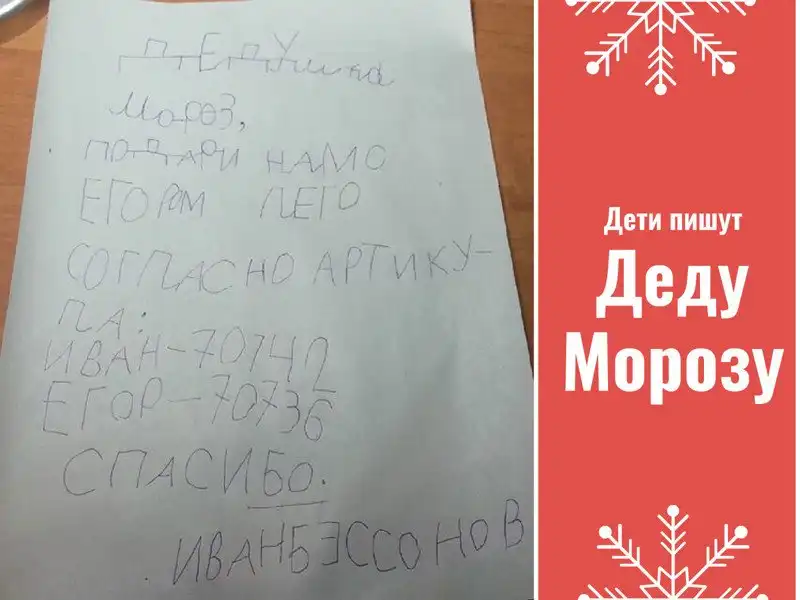 ДЕДУшка
Мороз,
ПОДАРИ НАМ С
ЕГОРОМ ЛЕГО
СОГЛАСНО АРТИКУ-
ЛА:
ИВАН-70742
ЕГОР-70736
СПАСИБО.
ИВАН БЭССОНОВ
Дети пишут
Деду
Морозу